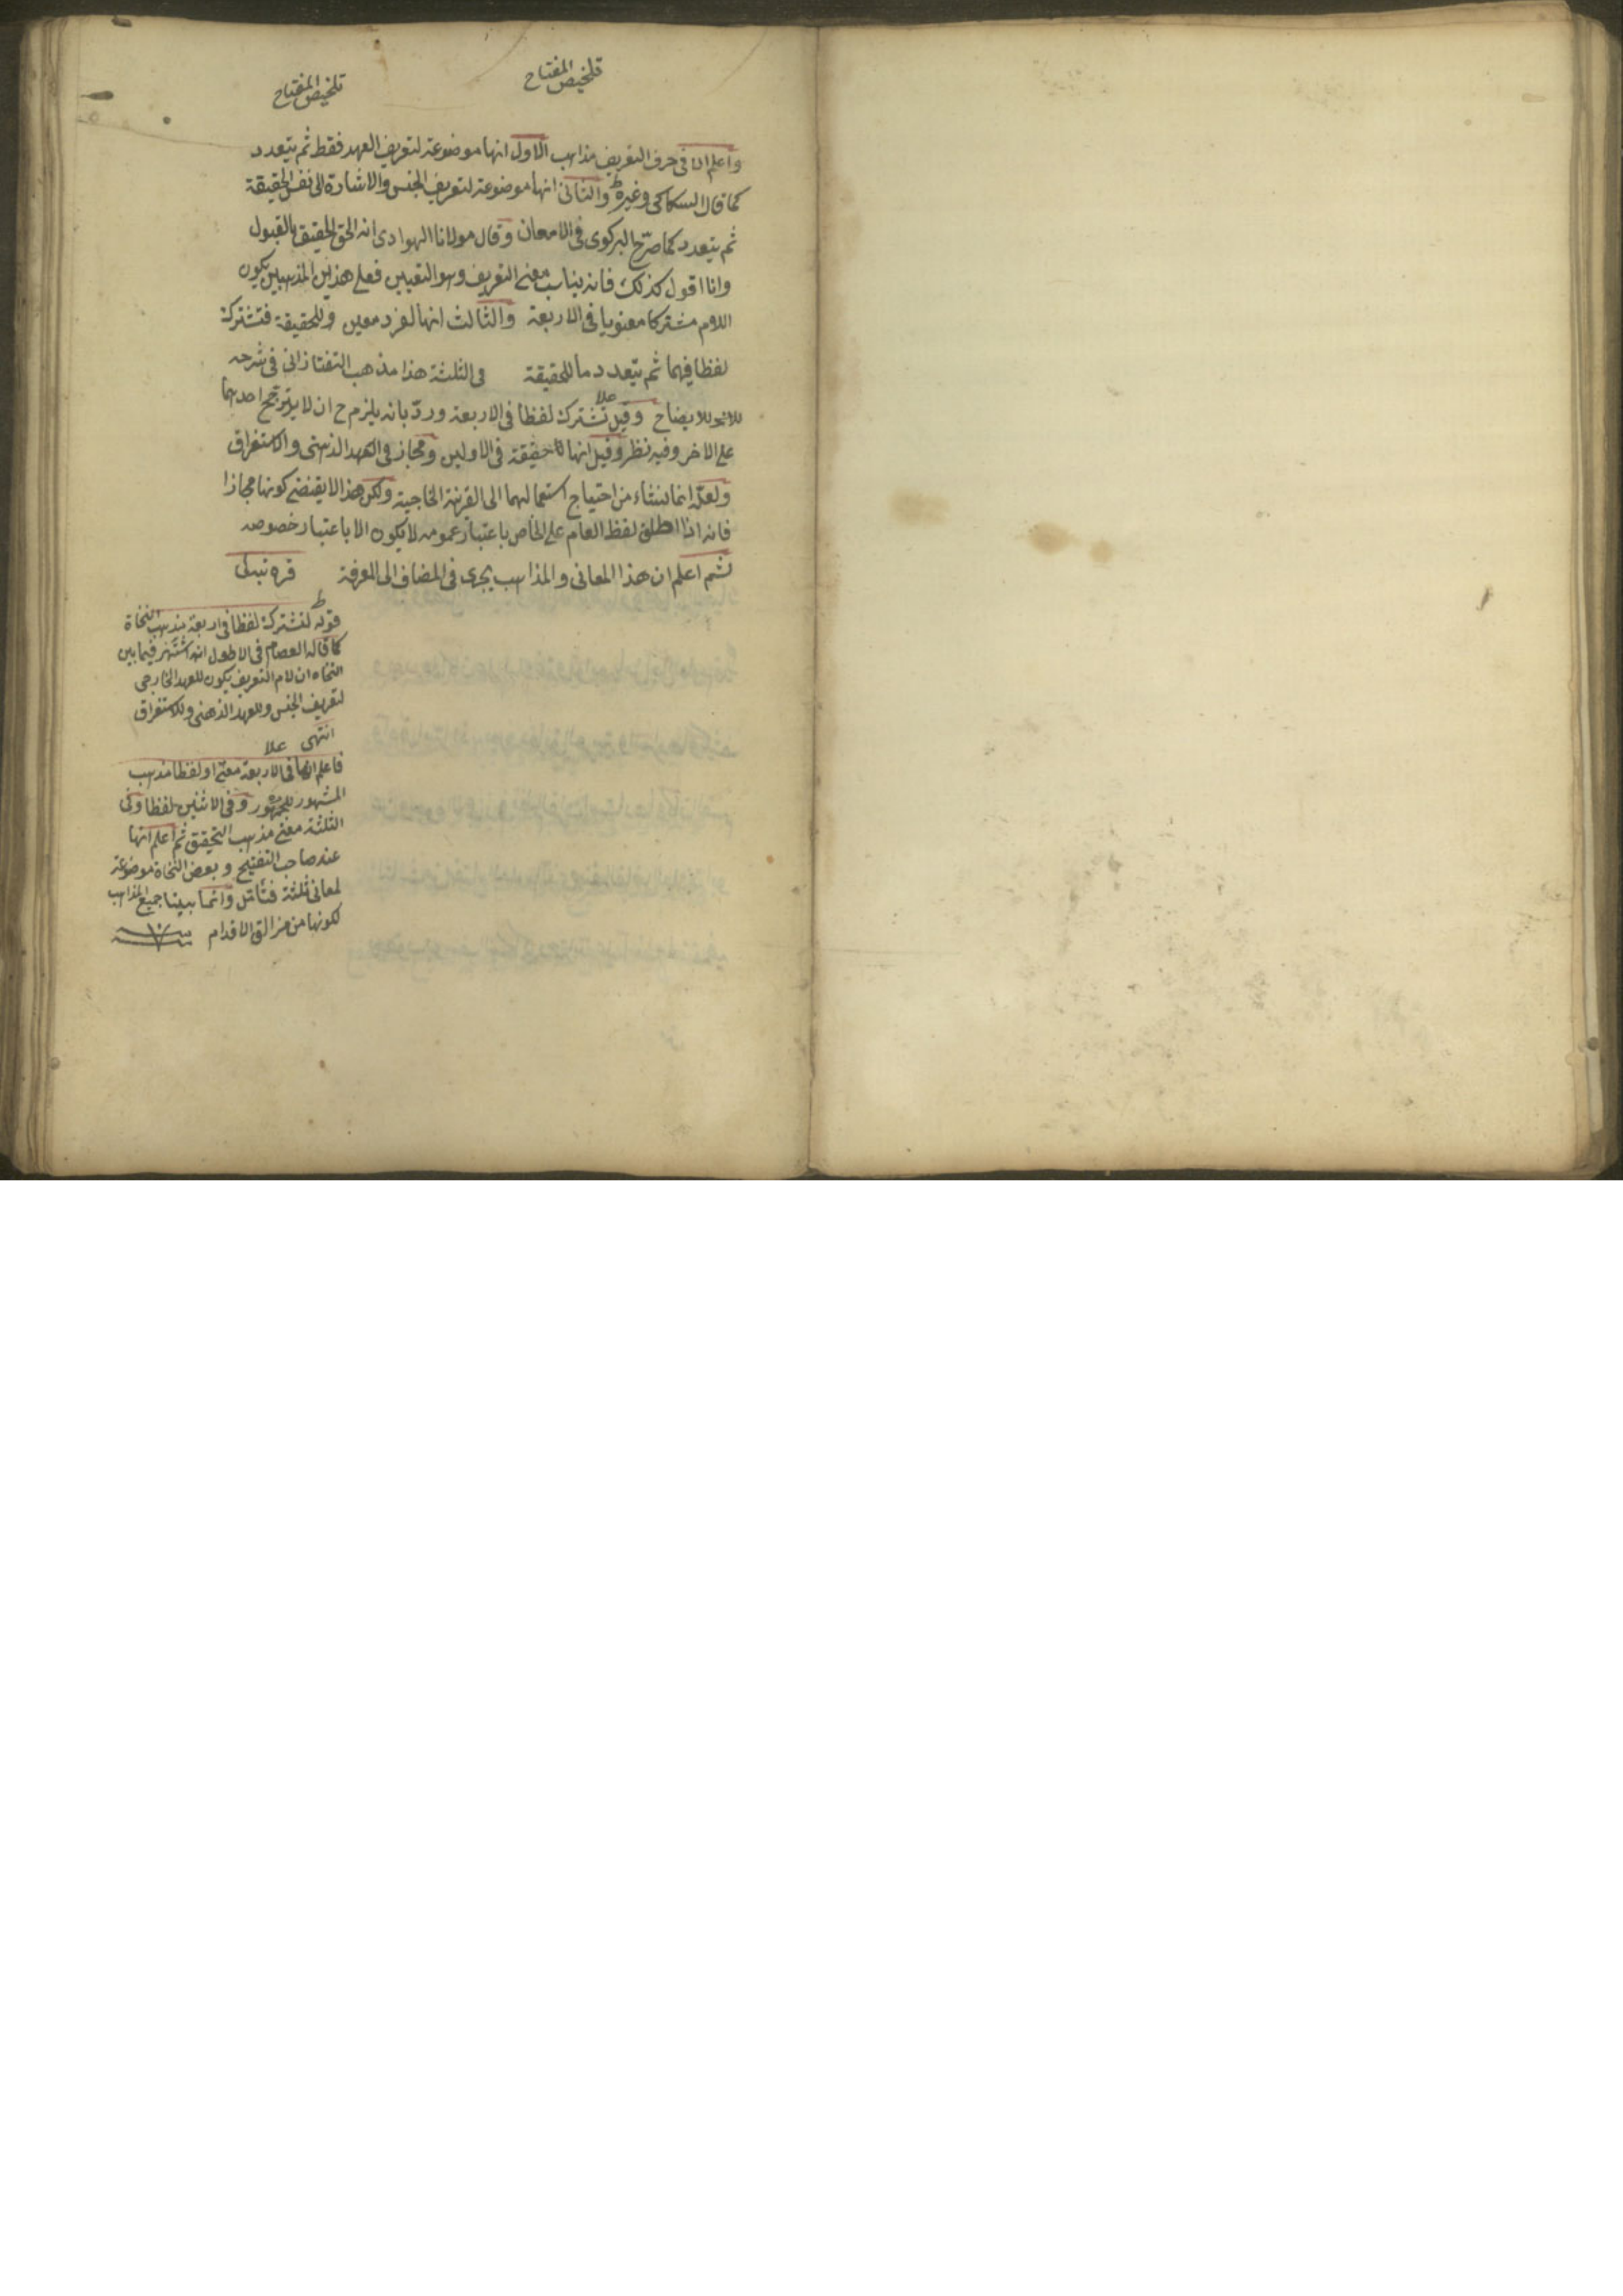 تلخيص المفتاح
تلخيص المفتاح
واعلم ان فى حرف التعريف مذاهب الاول انها موضوعة لتعريف العهد فقط ثم يتعدد
كما قال السكاكى وغيره والثانى انها موضوعة لتعريف الجنس والاشارة الى نفس الحقيقة
ثم يتعدد كما صرّح البركوى فى الامعان وقال مولانا الهوادى انه الحق الحقيق بالقبول
وانا اقول كذلك فانه يناسب معنى التعريف وهو التعيين فعلى هذين المذهبين يكون
اللام مشتركا معنويا فى الاربعة والثالث انها لفرد معين وللحقيقة فتشترك
لفظا فيهما ثم يتعدد ما للحقيقة فى الثلثة هذا مذهب التفتازانى فى شرحه
وقيل تشترك لفظا فى الاربعة وردّ بانه يلزم ح ان لا يترجح احدهما
على الاخر وفيه نظر وقيل انها حقيقة فى الاولين ومجاز فى العهد الذهنى والاستغراق
ولعلّه انما نشاء من احتياج استعمالهما الى القرنية الخاجية ولكن هذا لا يقتضى كونها مجازا
فانه اذا اطلق لفظ العام على الخاص باعتبار عمومه لا يكون الا باعتبار خصوصه
ثم اعلم ان هذا المعانى والمذاهب يجرى فى المضاف الى المعرفة قره تبه لى
قوله تشترك لفظا فى اربعة مذهب النحاة
كما قاله العصام فى الاطول انه اشتهر فيما بين
النحاه ان لام التعريف يكون للعهد الخارجى
لتعريف الجنس وللعهد الذهنى وللاستغراق
انتهى
فاعلم انها فى الاربعة معنى او لفظا مذهب
المشهور للجمهور وفى الاثنين لفظا وفى
الثلثة معنى مذهب التحقيق ثم اعلم انها
عند صاحب التنقيح وبعض النحاة موضوعة
لمعانى ثلثة فتأمّل وانما بينا جميع المذاهب
لكونها من مزالق الاقدام